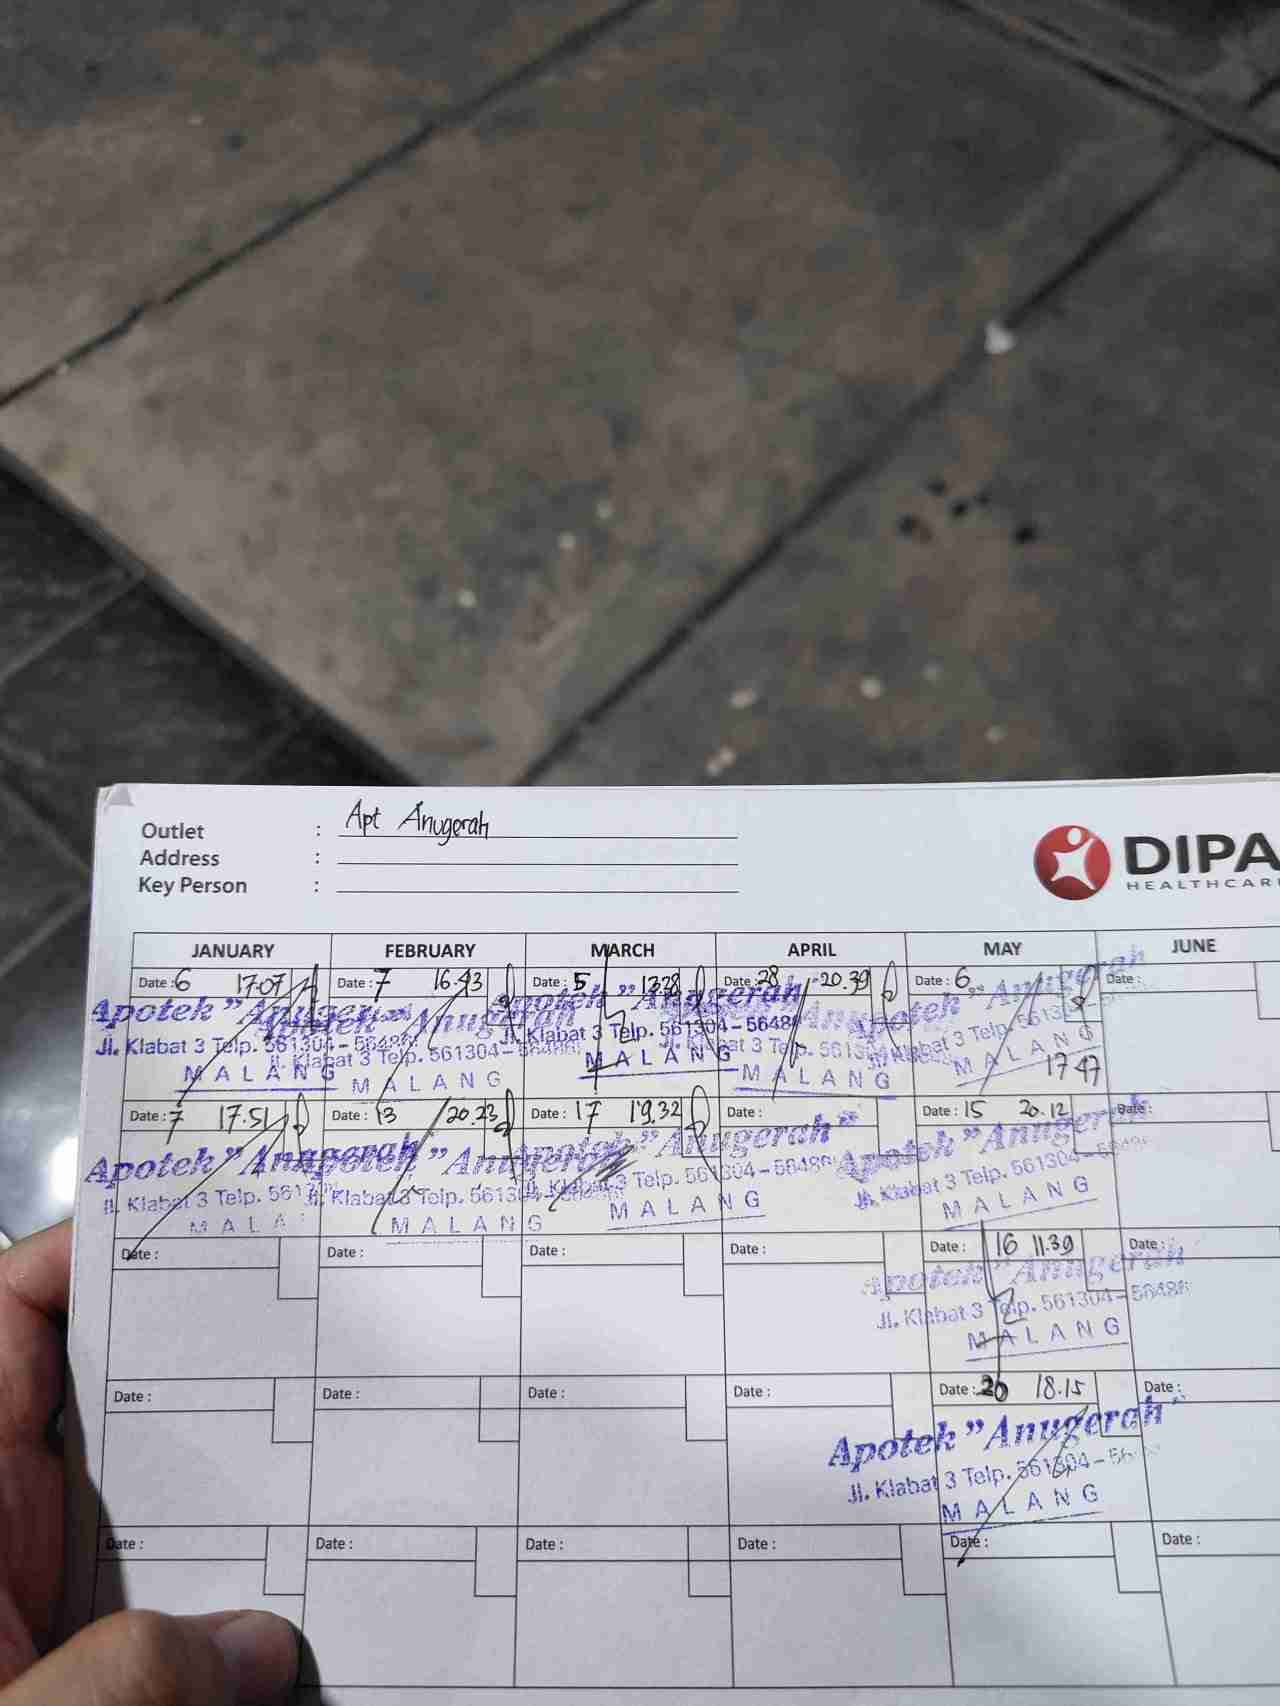 Outlet : Apt Anugerah
Address :
Key Person :
DIPA
HEALTHCARE
JANUARY FEBRUARY MARCH APRIL MAY JUNE
Date : 6 17.07 Date : 7 16.43 Date : 5 13.28 Date : 28 20.39 Date : 6 Date :
Apotek "Anugerah Anugerah Apotek "Anugerah Apotek "Anugerah
Jl. Klabat 3 Telp. 561304-56486 Jl. Klabat 3 Telp. 561304- Jl. Klabat 3 Telp. 561304-56486
MALANG MALANG MALANG MALANG MALANG
17 47
Date : 7 17.51 Date : 13 20.23 Date : 17 19.32 Date : Date : 15 20.12 Date :
Apotek "Anugerah Apotek "Anugerah Apotek "Anugerah" Apotek "Anugerah
Jl. Klabat 3 Telp. 561 Jl. Klabat 3 Telp. 561304- Klabat 3 Telp. 561304-56486 Jl. Klabat 3 Telp. 561304-56486
MALA MALANG MALANG MALANG
Date : Date : Date : Date : Date : 16 11.39 Date :
Apotek "Anugerah
Jl. Klabat 3 Telp. 561304-56486
MALANG
Date : Date : Date : Date : Date : 20 18.15 Date :
Apotek "Anugerah"
Jl. Klabat 3 Telp. 561304-56
MALANG
Date : Date : Date : Date : Date : Date :